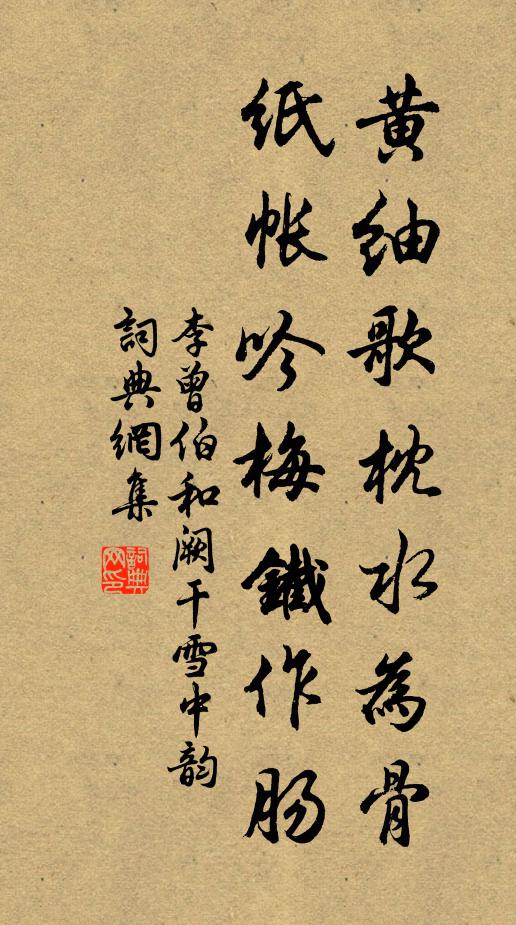 黄紬歌枕水為骨
紙帳吟梅鐵作腸
李曾伯和闕干雪中韵
詞典網集
詞典網印